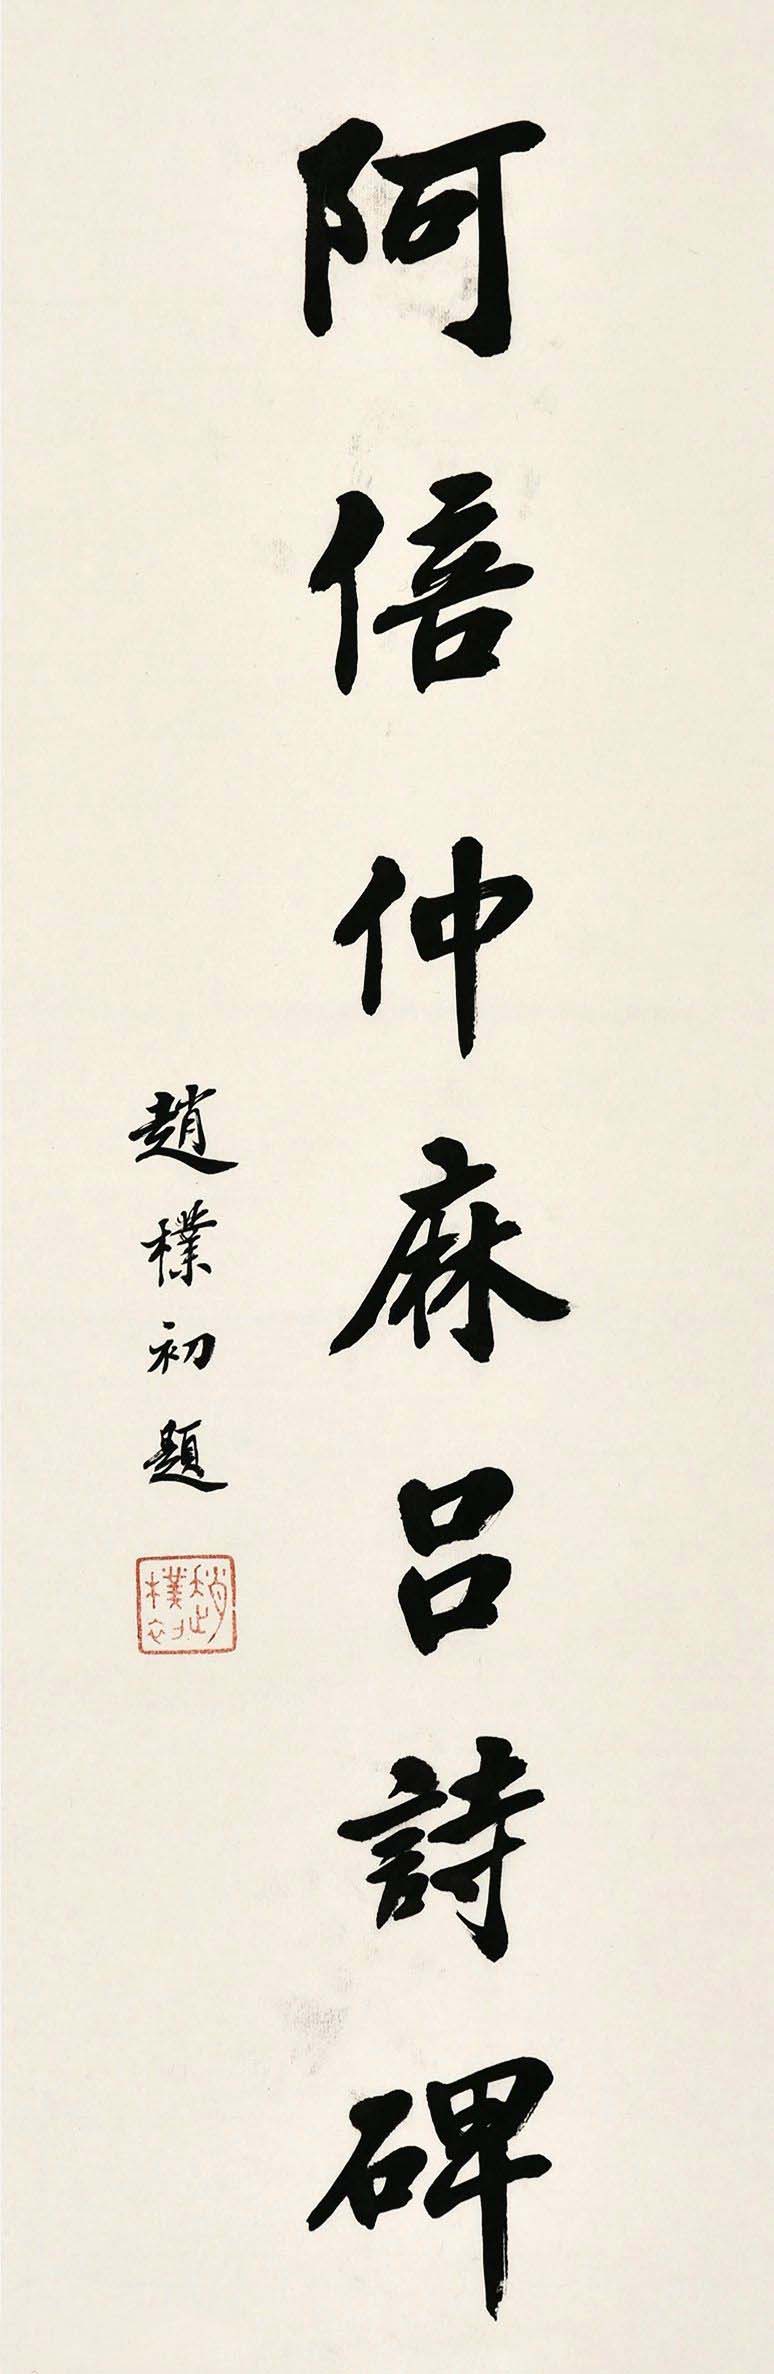 阿倍仲麻呂詩碑
趙樸初題
趙樸初